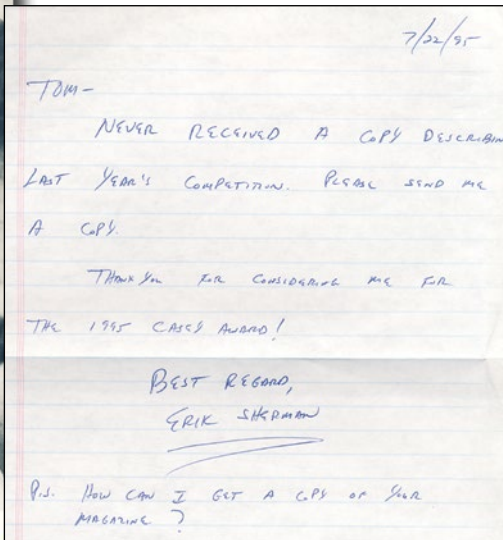 7/22/95
TOM-
NEVER RECEIVED A COPY DESCRIBIN
LAST YEAR'S COMPETITION. PLEASE SEND ME
A COPY.
THANK YOU FOR CONSIDERING ME FOR
THE 1995 CASEY AWARD!
BEST REGARD,
ERIK SHERMAN
P.S. HOW CAN I GET A COPY OF YOUR
MAGAZINE ?